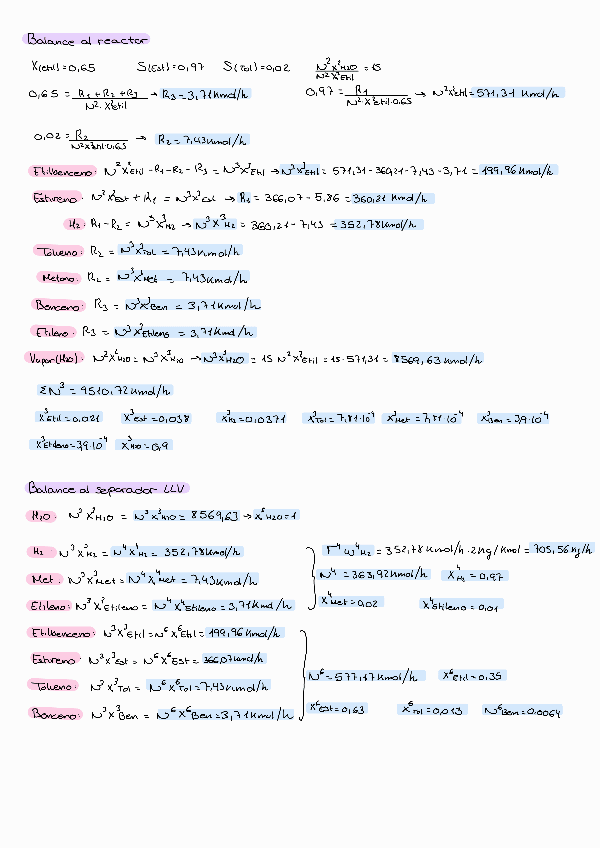 Balance al reactor
X(etil)=0,65 S(Est)=0,97 S(Tol)=0,02 N²X²H2O / N²X²Etil = 15
0,65 = R1 + R2 + R3 / N²·X²Etil → R3 = 3,71 Kmol/h 0,97 = R1 / N²X²Etil·0.65 → N²X²Etil = 571,31 Kmol/h
0,02 = R2 / N²X²Etil·0.65 → R2 = 7,43 Kmol/h
Etilbenceno: N²X²Etil - R1 - R2 - R3 = N³X³Etil → N³X³Etil = 571,31 - 360,21 - 7,43 - 3,71 = 199,96 Kmol/h
Estireno: N²X²Est + R1 = N³X³Est → R1 = 366,07 - 5,86 = 360,21 Kmol/h
H2: R1 - R2 = N³X³H2 → N³X³H2 = 360,21 - 7,43 = 352,78 Kmol/h
Tolueno: R2 = N³X³Tol = 7,43 Kmol/h
Metano: R2 = N³X³Met = 7,43 Kmol/h
Benceno: R3 = N³X³Ben = 3,71 Kmol/h
Etileno: R3 = N³X³Etileno = 3,71 Kmol/h
Vapor(H2O): N²X²H2O = N³X³H2O → N³X³H2O = 15 N²X²Etil = 15·571,31 = 8569,63 Kmol/h
ΣN³ = 9510,72 Kmol/h
X³Etil = 0,021 X³Est = 0,038 X³H2 = 0,0371 X³Tol = 7,81·10⁻⁴ X³Met = 7,81·10⁻⁴ X³Ben = 3,9·10⁻⁴
X³Etileno = 3,9·10⁻⁴ X³H2O = 0,9
Balance al separador LLV
H2O N³X³H2O = N⁵X⁵H2O = 8569,63 → X⁵H2O = 1
H2 N³X³H2 = N⁴X⁴H2 = 352,78 Kmol/h Γ⁴W⁴H2 = 352,78 Kmol/h · 2Kg/Kmol = 705,56 Kg/h
Met. N³X³Met = N⁴X⁴Met = 7,43 Kmol/h N⁴ = 363,92 Kmol/h X⁴H2 = 0,97
Etileno: N³X³Etileno = N⁴X⁴Etileno = 3,71 Kmol/h X⁴Met = 0,02 X⁴Etileno = 0,01
Etilbenceno: N³X³Etil = N⁶X⁶Etil = 199,96 Kmol/h
Estireno: N³X³Est = N⁶X⁶Est = 366,07 Kmol/h N⁶ = 577,17 Kmol/h X⁶Etil = 0,35
Tolueno N³X³Tol = N⁶X⁶Tol = 7,43 Kmol/h
Benceno: N³X³Ben = N⁶X⁶Ben = 3,71 Kmol/h X⁶Est = 0,63 X⁶Tol = 0,013 N⁶Ben = 0.0064